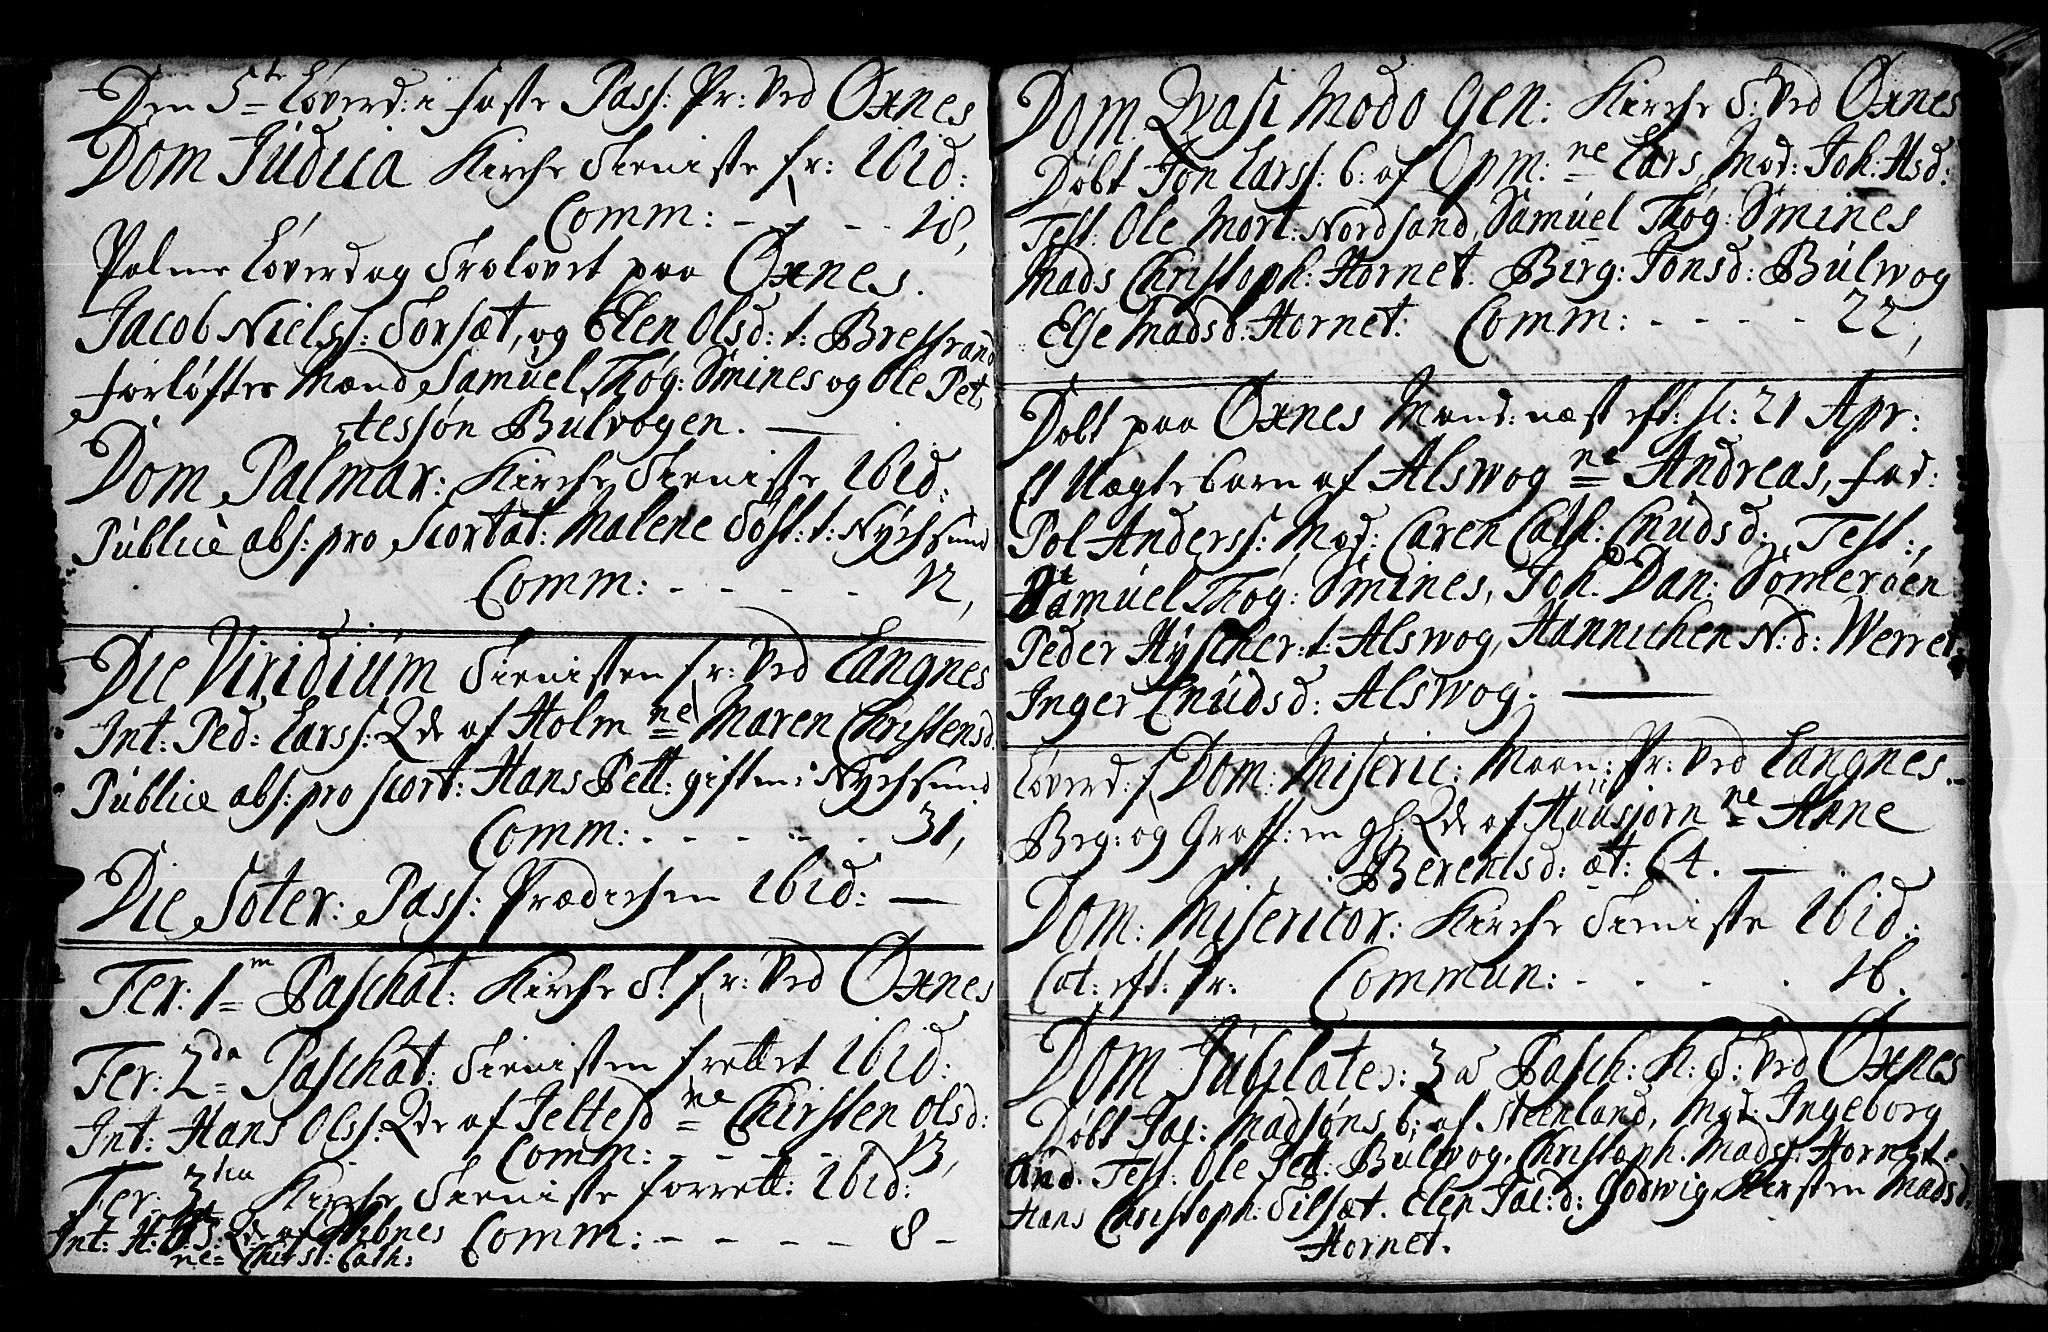 Den 5te Løverd: i faste Pass: Pr: ved Øxnes
Dom Judica Kirche Tieniste fr: ibid:
Comm: - - - - 18,
Palme Løverdag Trolovet paa Øxnes.
Jacob Niels: Torsæt, og Elen Olsd: t: Brestrand
forløftes Mænd, Samuel Thøg: Smines og Ole Pet,
tessøn Bulvogen.
Dom Palmar: Kirche Tieniste ibid:
Publicè abs: pro scortat: Malene Tost: t: Nychsund
Comm: - - - - 12,
Die Viridium Tienisten fr: ved Langnes
Int: Ped: Larss: Qde af Holm ne Maren Christensd.
Publice abs: pro scort: Hans Pett: giften i Nychsund
Comm: - - - - - 31,
Die Soter: Pass: Prædichen ibid:
Fer: 1m Paschat: Kirche T: fr: ved Øxnes
Fer: 2da Paschat: Tienisten frettet ibid:
Int: Hans Olss: Qde af Teltesd ne Chirsten Olsd:
Comm: - - - - 13,
Fer: 3tia Kirche Tieniste forrett: ibid:
Int: H: Qde af Comm: - - - - 8 -
ne Chirst: Cath:
Dom Qvasi Modo Gen: Kirche T: ved Øxnes
Døbt Jon Larss: b: af Opm: ne Lars, Mod: Joh: Hsd:
Test: Ole Mort: Nordsand, Samuel Thøg: Smines
Mads Christoph: Hornet. Birg: Jonsd: Bulwog
Else Madsd: Hornet: Comm: - - - - 22,
Døbt paa Øxnes Mand: næst eft: sc: 21 Apr:
et Uægte barn af Alswog ne Andreas, fad:
Pol Anderss: Mod: Caren Cath: Cnudsd: Test:,
Samuel Thøg: Smines, Joh: Dan: Somerøen
Peder Hyscher: t: Alswog, Hannichen N:d: Werret
Inger Cnudsd: Alswog.
Løverd: f Dom: Miseric: Maan: Pr: ved Langnes.
Beg: og Graff: en gl: Qde af Huusjorn ne Anne
Berentsd: æt: 64.
Dom: Misericor: Kirche Tieniste ibid:
Cat: eft: Pr: Commun: - - - - 16.
Dom Jubilate: 3 a Pasch: K: T: ved Øxnes
Døbt Jac: Madsøns b: af Steenland, Mod: Ingeborg
And. Test: Ole Pett: Bulwog, Christoph: Mads: Hornet:
Hans Christoph: Tilsæt. Elen Jac: d: Godwig Kirsten Madsd:
Hornet.